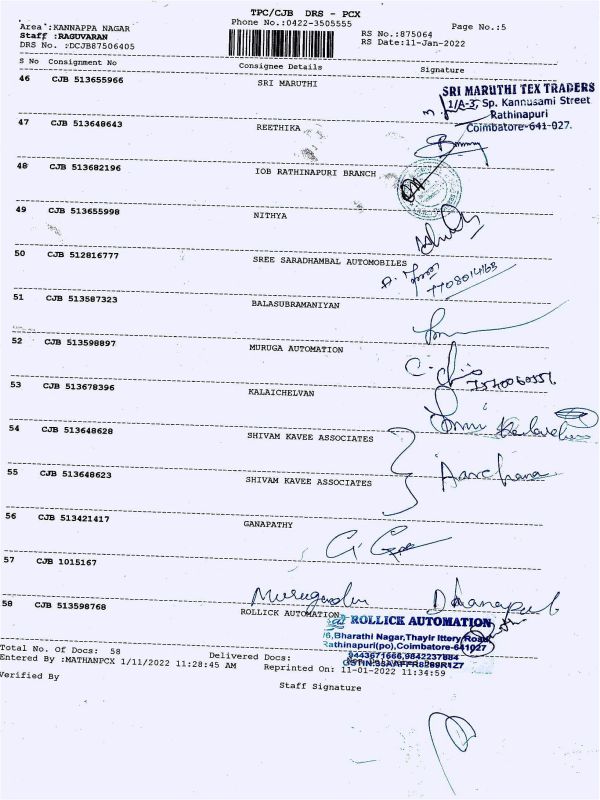 TPC/CJB DRS - PCX
Phone No.:0422-3505555
Page No.:5
Area :KANNAPPA NAGAR
Staff :RAGUVARAN
DRS No. :DCJB87506405
RS No.:875064
RS Date:11-Jan-2022
S No Consignment No Consignee Details Signature
46 CJB 513655966 SRI MARUTHI
SRI MARUTHI TEX TRADERS
1/A-3, Sp. Kannusami Street
Rathinapuri
Coimbatore-641-027.
47 CJB 513648643 REETHIKA
48 CJB 513682196 IOB RATHINAPURI BRANCH
49 CJB 513655998 NITHYA
50 CJB 512816777 SREE SARADHAMBAL AUTOMOBILES
7708014163
51 CJB 513587323 BALASUBRAMANIYAN
52 CJB 513598897 MURUGA AUTOMATION
53 CJB 513678396 KALAICHELVAN
54 CJB 513648628 SHIVAM KAVEE ASSOCIATES
Aarchana
55 CJB 513648623 SHIVAM KAVEE ASSOCIATES
56 CJB 513421417 GANAPATHY
57 CJB 1015167
58 CJB 513598768 ROLLICK AUTOMATION
ROLLICK AUTOMATION
/6,Bharathi Nagar,Thayir Ittery Road
Rathinapuri(po),Coimbatore-641027
9443671666,9842237884
Total No. Of Docs: 58 Delivered Docs:
Entered By :MATHANPCX 1/11/2022 11:28:45 AM Reprinted On: 11-01-2022 11:34:59
Verified By
Staff Signature